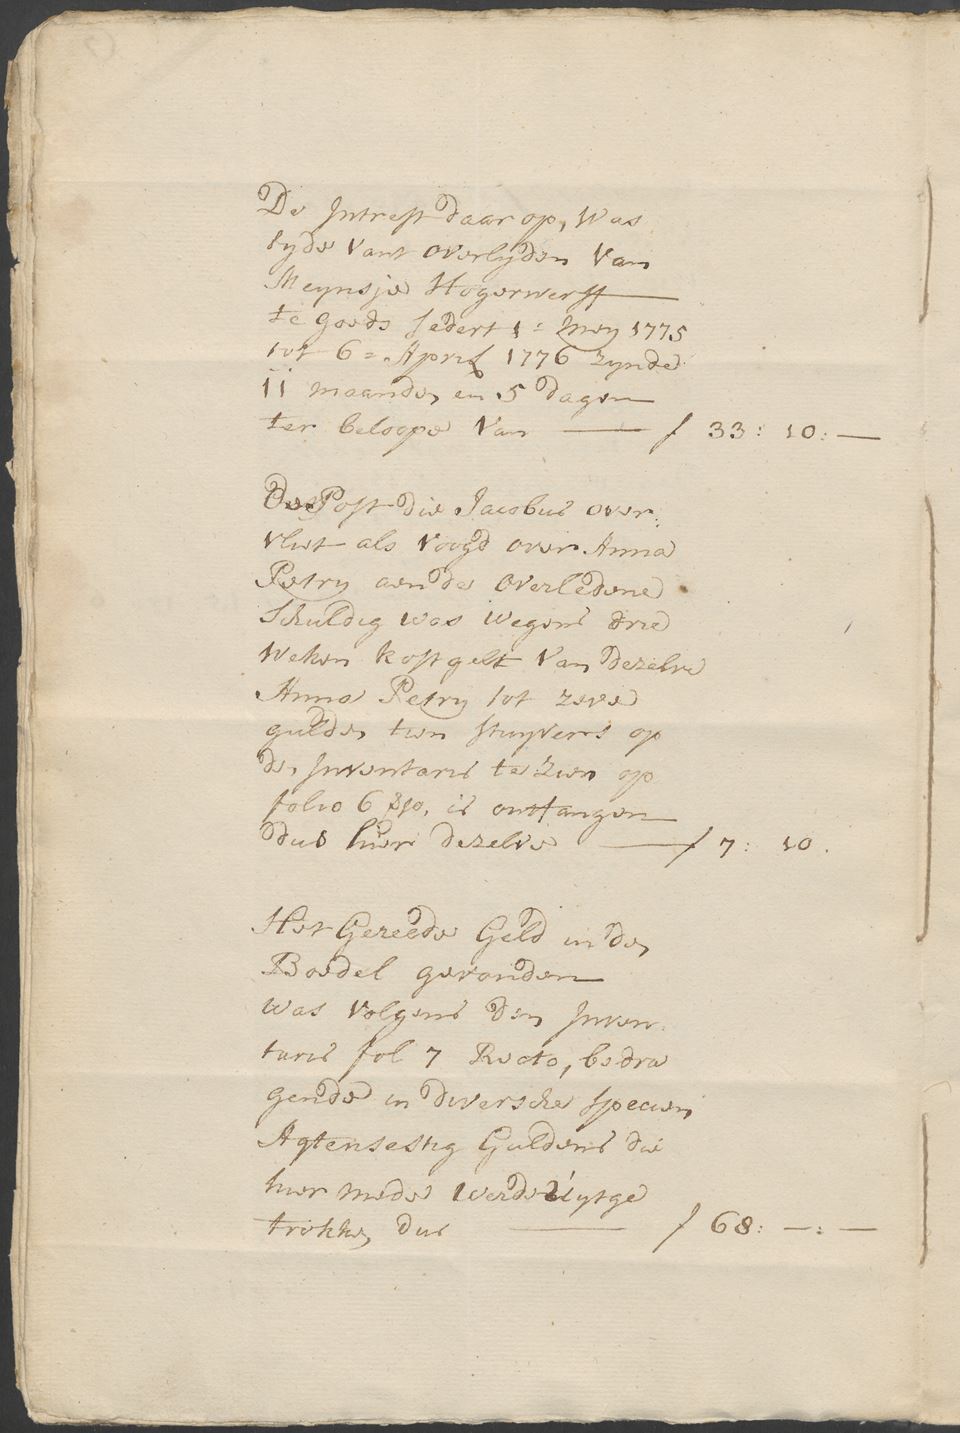 De Intrest daar op, Was
tyde vant overlyden van
Meynsje Hogerwerff
te goede sedert 1= Mey 1775
tot 6= April 1776 zynde
11 maande en 5 dagen
ter beloope van — f 33: 10: —
De Post die Jacobus over:
vliet als voogd over Anna
Petry aen de overledene
Schuldig was wegens drie
weken kostgelt van dezelve
Anna Petry tot zeve
gulde tien stuyvers op
de Inventaris te zien op
folio 6 is ontfangen
dus hier dezelve — f 7: 10.
Het Gereede Geld in de
Boedel gevonden
was volgens den Inven:
taris fol 7 Recto, bedra
gende in diversche specien
Agtensestig Guldens die
hier mede werde uytge
trokke, dus — f 68: —: —